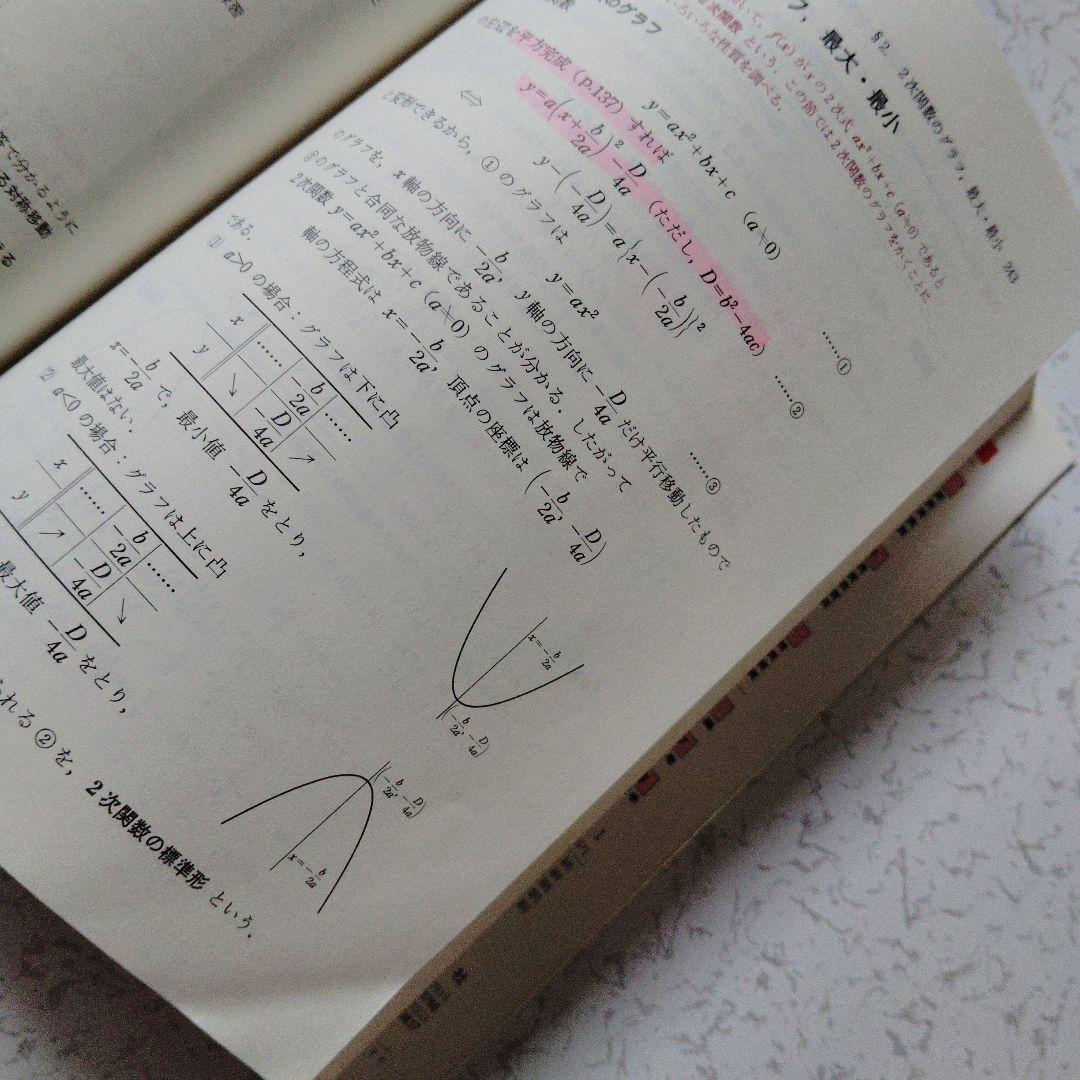 §2. 2次関数のグラフ，最大・最小 243
フ，最大・最小
おいて，f(x) が x の2次式 ax²+bx+c (a≠0) であると
2次関数 という．この節では2次関数のグラフをかくことに
いろいろな性質を調べる．
のグラフ
関数
y=ax²+bx+c (a≠0) ……①
の右辺を平方完成 (p.137) すれば
y=a(x+b/2a)²-D/4a (ただし，D=b²-4ac) ……②
⇔ y-(-D/4a)=a{x-(-b/2a)}²
と変形できるから，①のグラフは
y=ax² ……③
のグラフを，x 軸の方向に -b/2a，y 軸の方向に -D/4a だけ平行移動したもので
③のグラフと合同な放物線であることが分かる．したがって
2次関数 y=ax²+bx+c (a≠0) のグラフは放物線で
軸の方程式は x=-b/2a，頂点の座標は (-b/2a, -D/4a)
である．
(1) a>0 の場合：グラフは下に凸
x …… -b/2a ……
y ↘ -D/4a ↗
x=-b/2a で，最小値 -D/4a をとり，
最大値はない．
x=-b/2a
(-b/2a, -D/4a)
(2) a<0 の場合：グラフは上に凸
x …… -b/2a ……
y ↗ -D/4a ↘
最大値 -D/4a をとり，
(-b/2a, -D/4a)
x=-b/2a
られる②を，2次関数の標準形 という．
答で分かるように
る対称移動
える